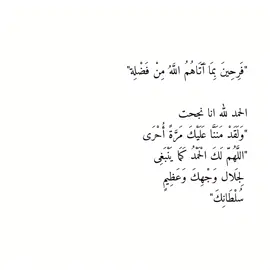 "فَرِحِينَ بِمَا آتَاهُمُ اللَّهُ مِنْ فَضْلِهِ"
الحمد لله انا نجحت
"وَلَقَدْ مَنَنَّا عَلَيْكَ مَرَّةً أُخْرَى
"اللَّهُمّ لَكَ الْحَمْدُ كَمَا يَنْبَغِى
لِجَلال وَجْهِكَ وَعَظِيمِ
سُلْطَانِكَ"